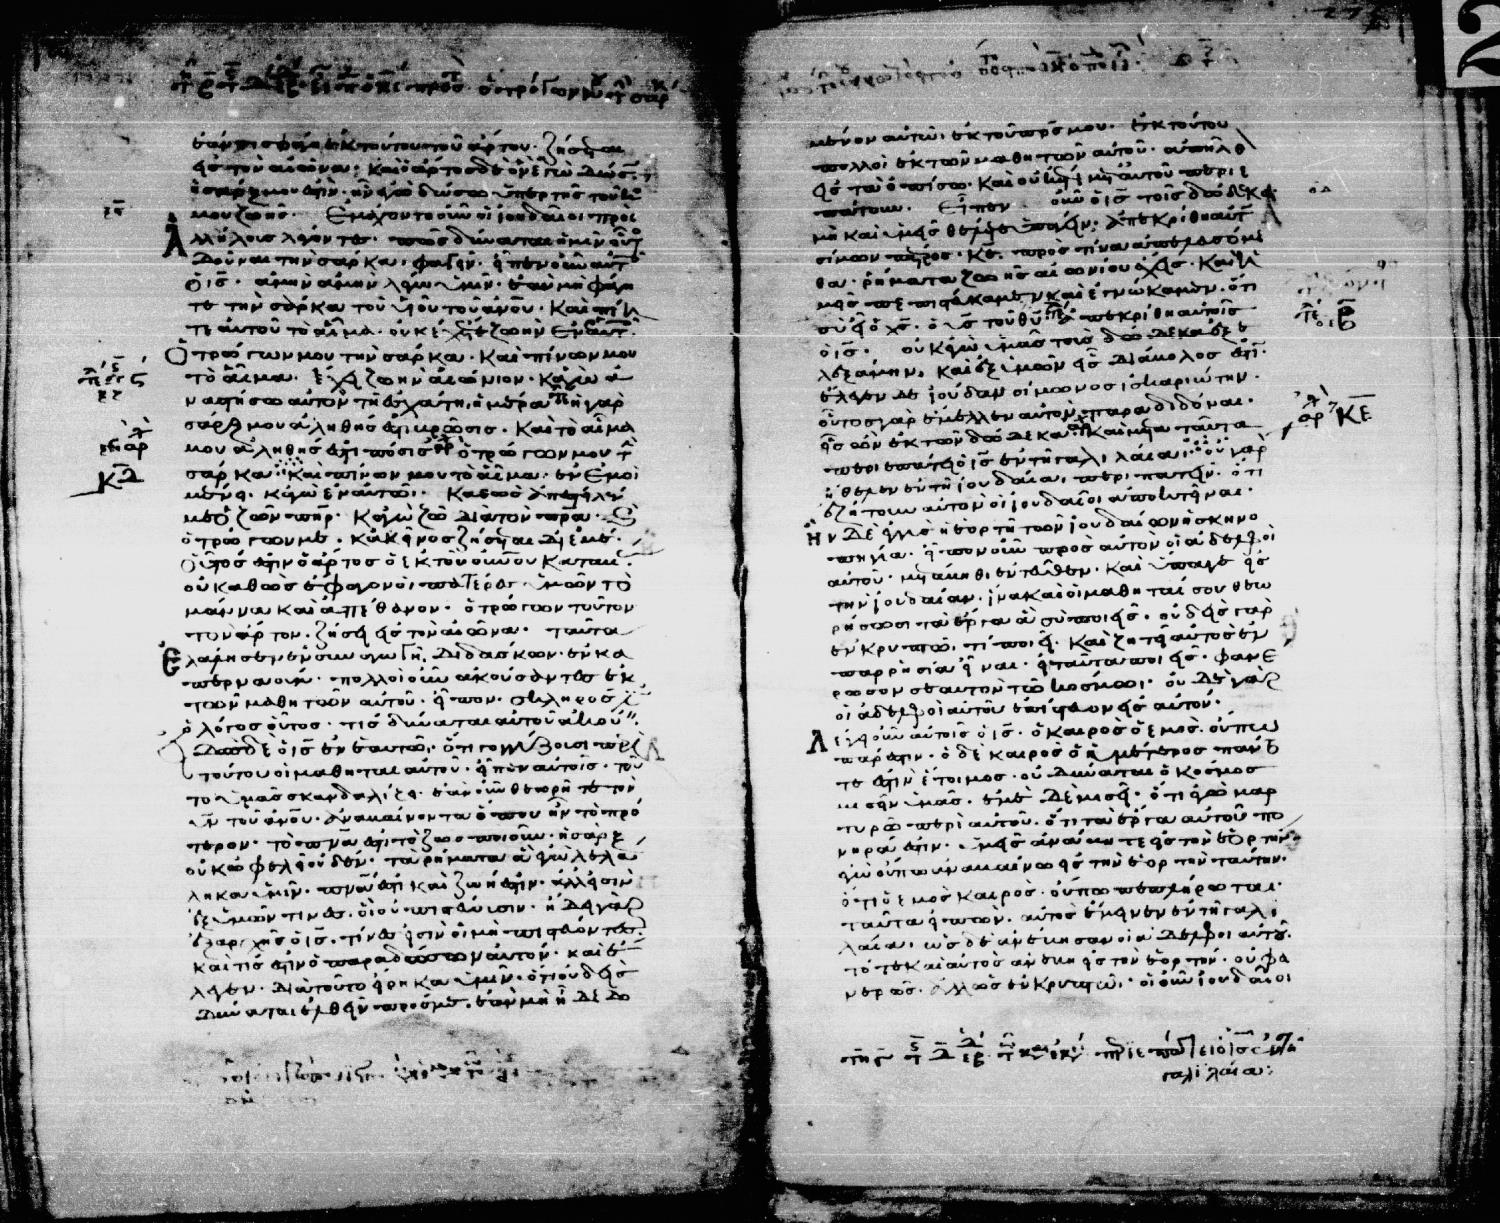 ἐάν τις φάγη ἐκ τούτου τοῦ ἄρτου· ζήσεται
εἰς τὸν αἰῶνα· Καὶ ὁ ἄρτος δὲ ὃν ἐγὼ δώσω
ἡ σάρξ μου ἐστὶν· ἣν ἐγὼ δώσω ὑπὲρ τῆς τοῦ κό
μου ζωῆς· Ἐμάχοντο οὖν οἱ ἰουδαῖοι προς
Ἀλλήλους λέγοντες· πῶς δύναται ἡμῖν οὗτος
δοῦναι τὴν σάρκα φαγεῖν· εἶπεν οὖν αὐτοῖς
ὁ ις· ἀμὴν ἀμὴν λέγω ὑμῖν· ἐὰν μὴ φάγη
τε τὴν σάρκα τοῦ υἱοῦ τοῦ ἀνου· Καὶ πίη
τε αὐτοῦ τὸ αἷμα· οὐκ ἔχετε ζωὴν ἐν ἑαυτοῖς
Ὁ τρώγων μου τὴν σάρκα· Καὶ πίνων μου
τὸ αἷμα· ἔχει ζωὴν αἰώνιον· Κἀγὼ ἀ
ναστήσω αὐτὸν τῆ ἐσχάτη ἡμέρα ἡ γὰρ
σάρξ μου ἀληθής ἐστι βρῶσις· Καὶ τὸ αἷμά
μου ἀληθής ἐστι πόσις ὁ τρώγων μου τὴν
σάρκα· Καὶ πίνων μου τὸ αἷμα· ἐν ἐμοὶ
μένει· κἀγὼ ἐν αὐτῶ· Καθὼς ἀπέστειλέν
με ὁ ζῶν πηρ· Κἀγὼ ζῶ διὰ τὸν πρα· Καὶ
ὁ τρώγων με· κἀκεῖνος ζήσεται δι ἐμέ·
Οὗτός ἐστιν ὁ ἄρτος ὁ ἐκ τοῦ οὐνοῦ Καταβάς
οὐ καθὼς ἔφαγον οἱ πατέρες ὑμῶν τὸ
μάννα καὶ ἀπέθανον· ὁ τρώγων τοῦτον
τὸν ἄρτον· ζήσει εἰς τὸν αἰῶνα· ταῦτα
Ἐλάλησεν ἐν συναγωγῆ διδάσκων ἐν κα
περναούμ· πολλοὶ οὖν ἀκούσαντες ἐκ
τῶν μαθητῶν αὐτοῦ· εἶπον· σκληρός ἐστιν
ὁ λόγος οὗτος· τίς δύναται αὐτοῦ ἀκούειν
Εἰδὼς δὲ ὁ ις ἐν ἑαυτῶ· ὅτι γογγύζουσι περὶ
τούτου οἱ μαθηταὶ αὐτοῦ· εἶπεν αὐτοῖς· τοῦ
το ὑμᾶς σκανδαλίζει· ἐὰν οὖν θεωρῆτε τὸν
υν τοῦ ἀνου· Ἀναβαίνοντα ὅπου ἦν τὸ πρό
τερον· τὸ πνα ἐστι τὸ ζωοποιοῦν· ἡ σὰρξ
οὐκ ὠφελεῖ οὐδέν· τὰ ρήματα ἃ ἐγὼ λελά
ληκα ὑμῖν· πνα ἐστι καὶ ζωή ἐστιν· ἀλλ εἰσὶν
ἐξ ὑμῶν τινες· οἳ οὐ πιστεύουσιν· ἤδει γὰρ
ἐξ ἀρχῆς ὁ ις· τίνες εἰσὶν οἱ μὴ πιστεύοντες·
καὶ τίς ἐστιν ὁ παραδώσων αὐτόν· καὶ ἔ
λεγεν· διὰ τοῦτο εἴρηκα ὑμῖν· ὅτι οὐδεὶς
δύναται ἐλθεῖν πρός με· ἐὰν μὴ ἦ δεδο
μένον αὐτῶ· ἐκ τοῦ πρς μου· Ἐκ τούτου
πολλοὶ ἐκ τῶν μαθητῶν αὐτοῦ· ἀπῆλθον
εἰς τὰ ὀπίσω· Καὶ οὐκέτι μετ αὐτοῦ περιε
πάτουν· Εἶπεν οὖν ὁ ις τοῖς δώδεκα·
μὴ καὶ ὑμεῖς θέλετε ὑπάγειν· Ἀπεκρίθη αὐτῶ
σίμων πέτρος· Κε· πρὸς τίνα ἀπελευσόμε
θα· ρήματα ζωῆς αἰωνίου ἔχεις· Καὶ ἡ
μεῖς πεπιστεύκαμεν καὶ ἐγνώκαμεν· ὅτι
σὺ εἶ ὁ χς· ὁ υς τοῦ θυ ἀπεκρίθη αὐτοῖς
ὁ ις· οὐκ ἐγὼ ὑμᾶς τοὺς δώδεκα ἐξε
λεξάμην· Καὶ ἐξ ὑμῶν εἷς διάβολος ἐστι·
ἔλεγεν δὲ ἰούδαν σίμωνος ἰσκαριώτην·
οὗτος γὰρ ἔμελλεν αὐτὸν παραδιδόναι·
εἷς ὢν ἐκ τῶν δώδεκα· Καὶ μετὰ ταῦτα
περιεπάτει ὁ ις ἐν τῆ γαλιλαία· οὐ γὰρ
ἤθελεν ἐν τῆ ἰουδαία περιπατεῖν· ὅτι
ἐζήτουν αὐτὸν οἱ ἰουδαῖοι ἀποκτεῖναι·
Ἦν δὲ ἐγγὺς ἡ ἑορτὴ τῶν ἰουδαίων ἡ σκηνο
πηγία· εἶπον οὖν πρὸς αὐτὸν οἱ ἀδελφοὶ
αὐτοῦ· μετάβηθι ἐντεῦθεν· Καὶ ὕπαγε εἰς
τὴν ἰουδαίαν· ἵνα καὶ οἱ μαθηταί σου θεω
ρήσωσι τὰ ἔργα ἃ σὺ ποιεῖς· οὐδεὶς γὰρ
ἐν κρυπτῶ τί ποιεῖ· Καὶ ζητεῖ αὐτὸς ἐν
παρρησία εἶναι· εἰ ταῦτα ποιεῖς· φανέ
ρωσον σεαυτὸν τῶ κόσμω· οὐδὲ γὰρ
οἱ ἀδελφοὶ αὐτοῦ ἐπίστευον εἰς αὐτόν·
Λέγει οὖν αὐτοῖς ὁ ις· ὁ καιρὸς ὁ ἐμὸς οὔπω
πάρεστιν· ὁ δὲ καιρὸς ὁ ὑμέτερος πάντο
τέ ἐστιν ἕτοιμος· οὐ δύναται ὁ κόσμος
μισεῖν ὑμᾶς· ἐμὲ δὲ μισεῖ· ὅτι ἐγὼ μαρ
τυρῶ περὶ αὐτοῦ· ὅτι τὰ ἔργα αὐτοῦ πο
νηρά ἐστιν· ὑμεῖς ἀνάβητε εἰς τὴν ἑορτήν·
ἐγὼ οὔπω ἀναβαίνω εἰς τὴν ἑορτὴν ταύτην·
ὅτι ὁ ἐμὸς καιρὸς· οὔπω πεπλήρωται·
ταῦτα εἰπὼν· αὐτὸς ἔμεινεν ἐν τῆ γαλι
λαία· ὡς δὲ ἀνέβησαν οἱ ἀδελφοὶ αὐτοῦ·
τότε καὶ αὐτὸς ἀνέβη εἰς τὴν ἑορτήν· οὐ φα
νερῶς· ἀλλ ὡς ἐν κρυπτῶ· οἱ οὖν ἰουδαῖοι
γαλιλαία·